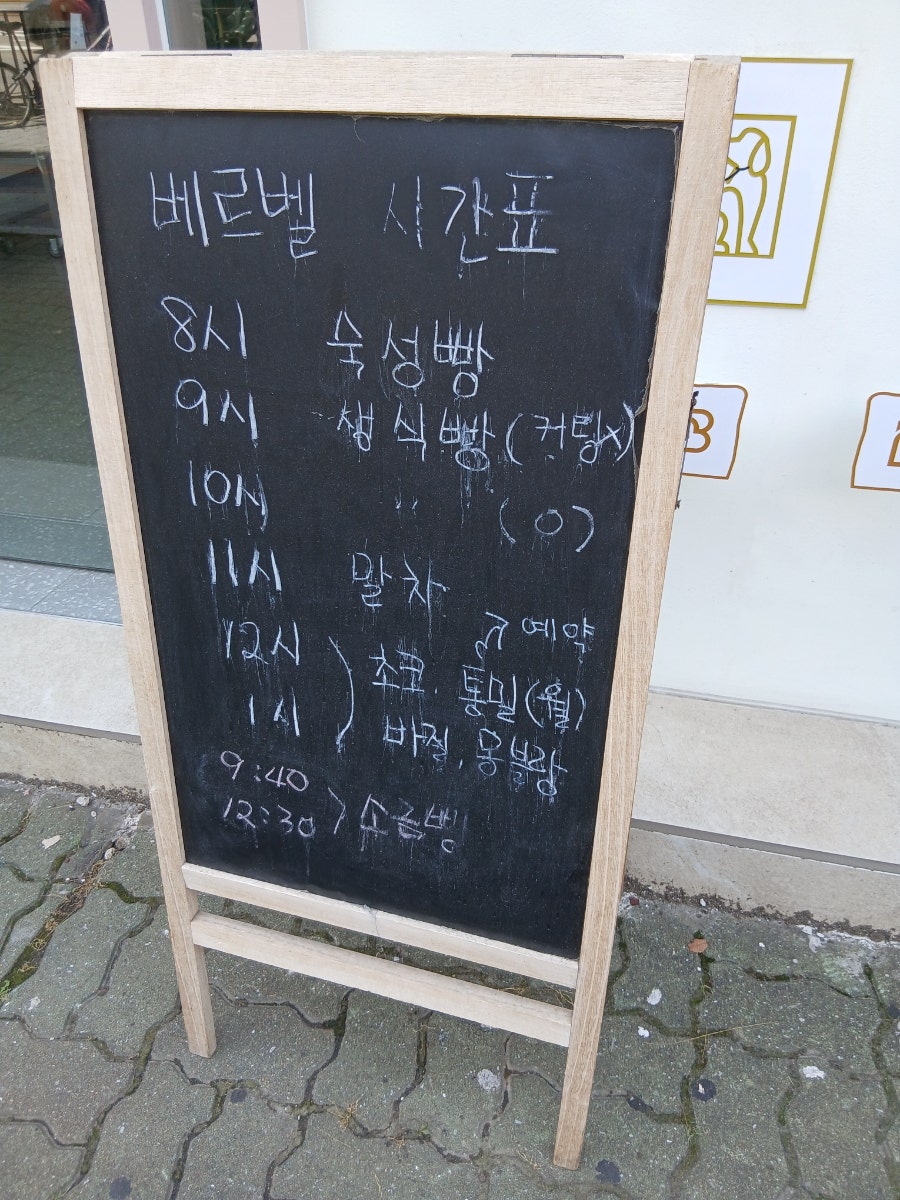 베르벨 시간표
8시 숙성빵
9시 생식빵 (컷팅x)
10시 " (O)
11시 말차
예약
12시
1시 ) 초코, 통밀(월)
바질, 몽블랑
9:40
12:30 > 소금빵